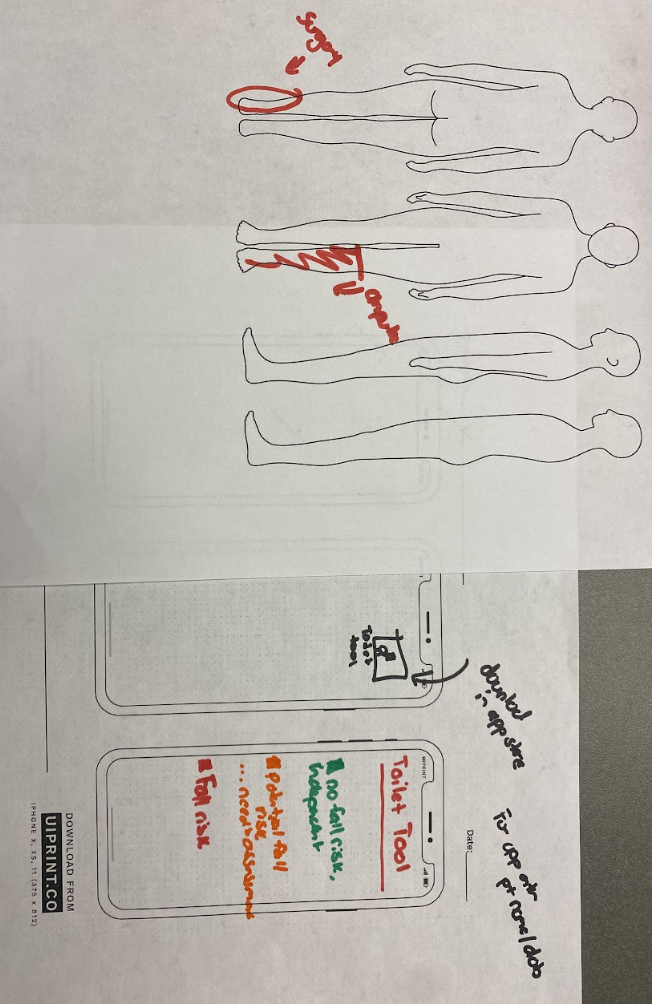 surgery
amputee
download
in app store
Toilet
tool
For app enter
pt name/dob
Date:
UIPRINT
Toilet Tool
no fall risk,
independent
potential fall
risk
... needs assessment
Fall risk
DOWNLOAD FROM
UIPRINT.CO
IPHONE X, XS, 11 (375 X 812)